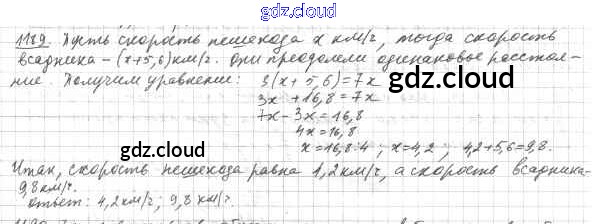 gdz.cloud
1189. Пусть скорость пешехода x км/г, тогда скорость
всадника – (x+5,6) км/г. Они преодолели одинаковое расстоя-
ние. Получим уравнение: 3(x+5,6)=7x
3x+16,8=7x
7x-3x=16,8
4x=16,8
x=16,8:4; x=4,2; 4,2+5,6=9,8.
gdz.cloud
gdz.cloud
Итак, скорость пешехода равна 1,2км/г, а скорость всадника-
9,8км/г.
ответ: 4,2км/г; 9,8 км/г.
gdz.cloud
gdz.cloud